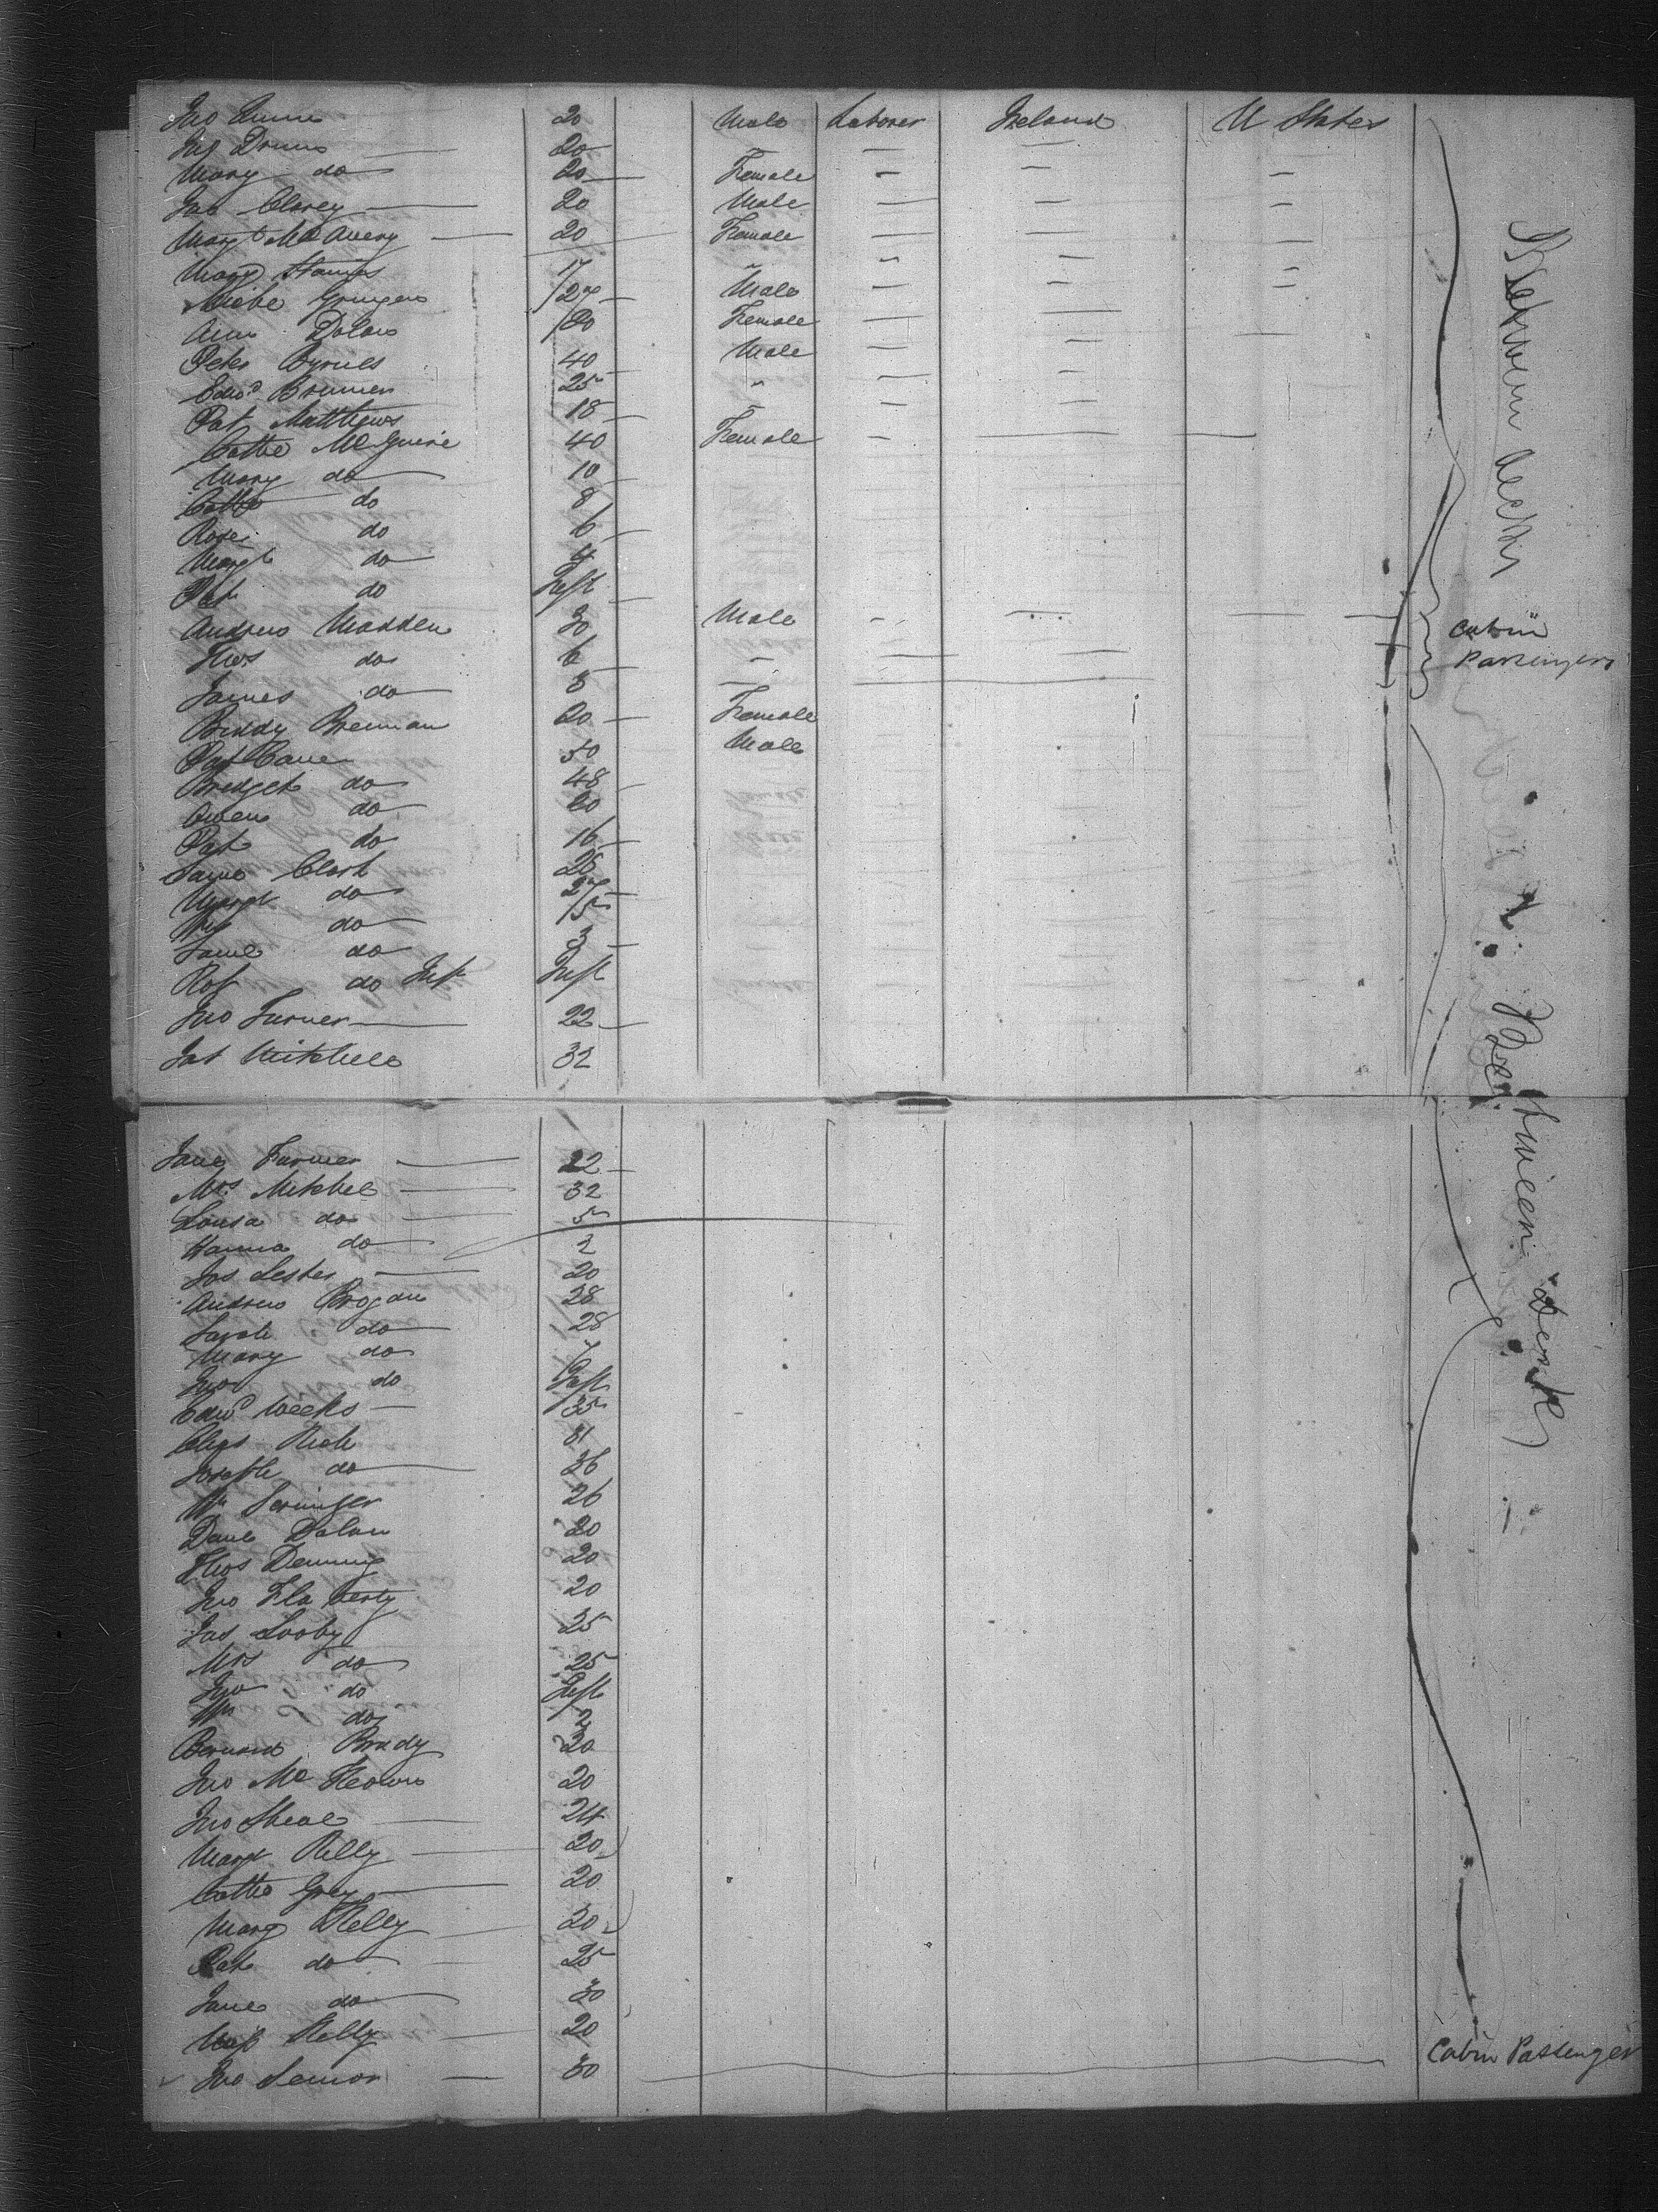 Jno 20 Male Laborer Ireland U States
20
Mary do 20 Female
Jas Clarey 20 Male
Margt McAvery 20 Female
Mary 17
27 Male
Ann Dolan 20 Female
Peter Byrnes 40 Male
Edwd Brennen 25 "
Pat Matthews 18
Cathe McGuire 40 Female
Mary do 10
Cathe do 8
Rose do 6
Margt do 4
Pat do Inft
Andrew Madden 30 Male
Thos do 6
James do 8
Cabin
Passengers
Biddy Brennan 20 Female
Pat Cane 50 Male
Bridget do 48
Owen do 20
Pat do 16
Clark 26
Margt do 27
Wm do 5
do 3
Rot do Inft Inft
Jno Turner 22
Jas Mitchell 32
Between decks
Jane Turner 22
Mrs Mitchel 32
Lousa do 5
Hanna do 2
Jos Lester 20
Andrew Brogan 28
Sarah do 28
Mary do 7
Jno do Inft
Edwd Weeks 35
Rich 31
Joseph do 36
Wm 26
Danl Dolan 20
Thos Denning 20
Jno Flaherty 20
Jas Looby 25
Mrs do 25
Jno do Inft
Wm do 2
Bernard Brady 20
Jno Mc 20
Jno Sheal 24
Margt Kelly 20
Cathe Grey 20
Mary Kelly 20
Pat do 25
Jane do 30
Kelly 20
Jno Lemon 30 Cabin Passenger
Between deck